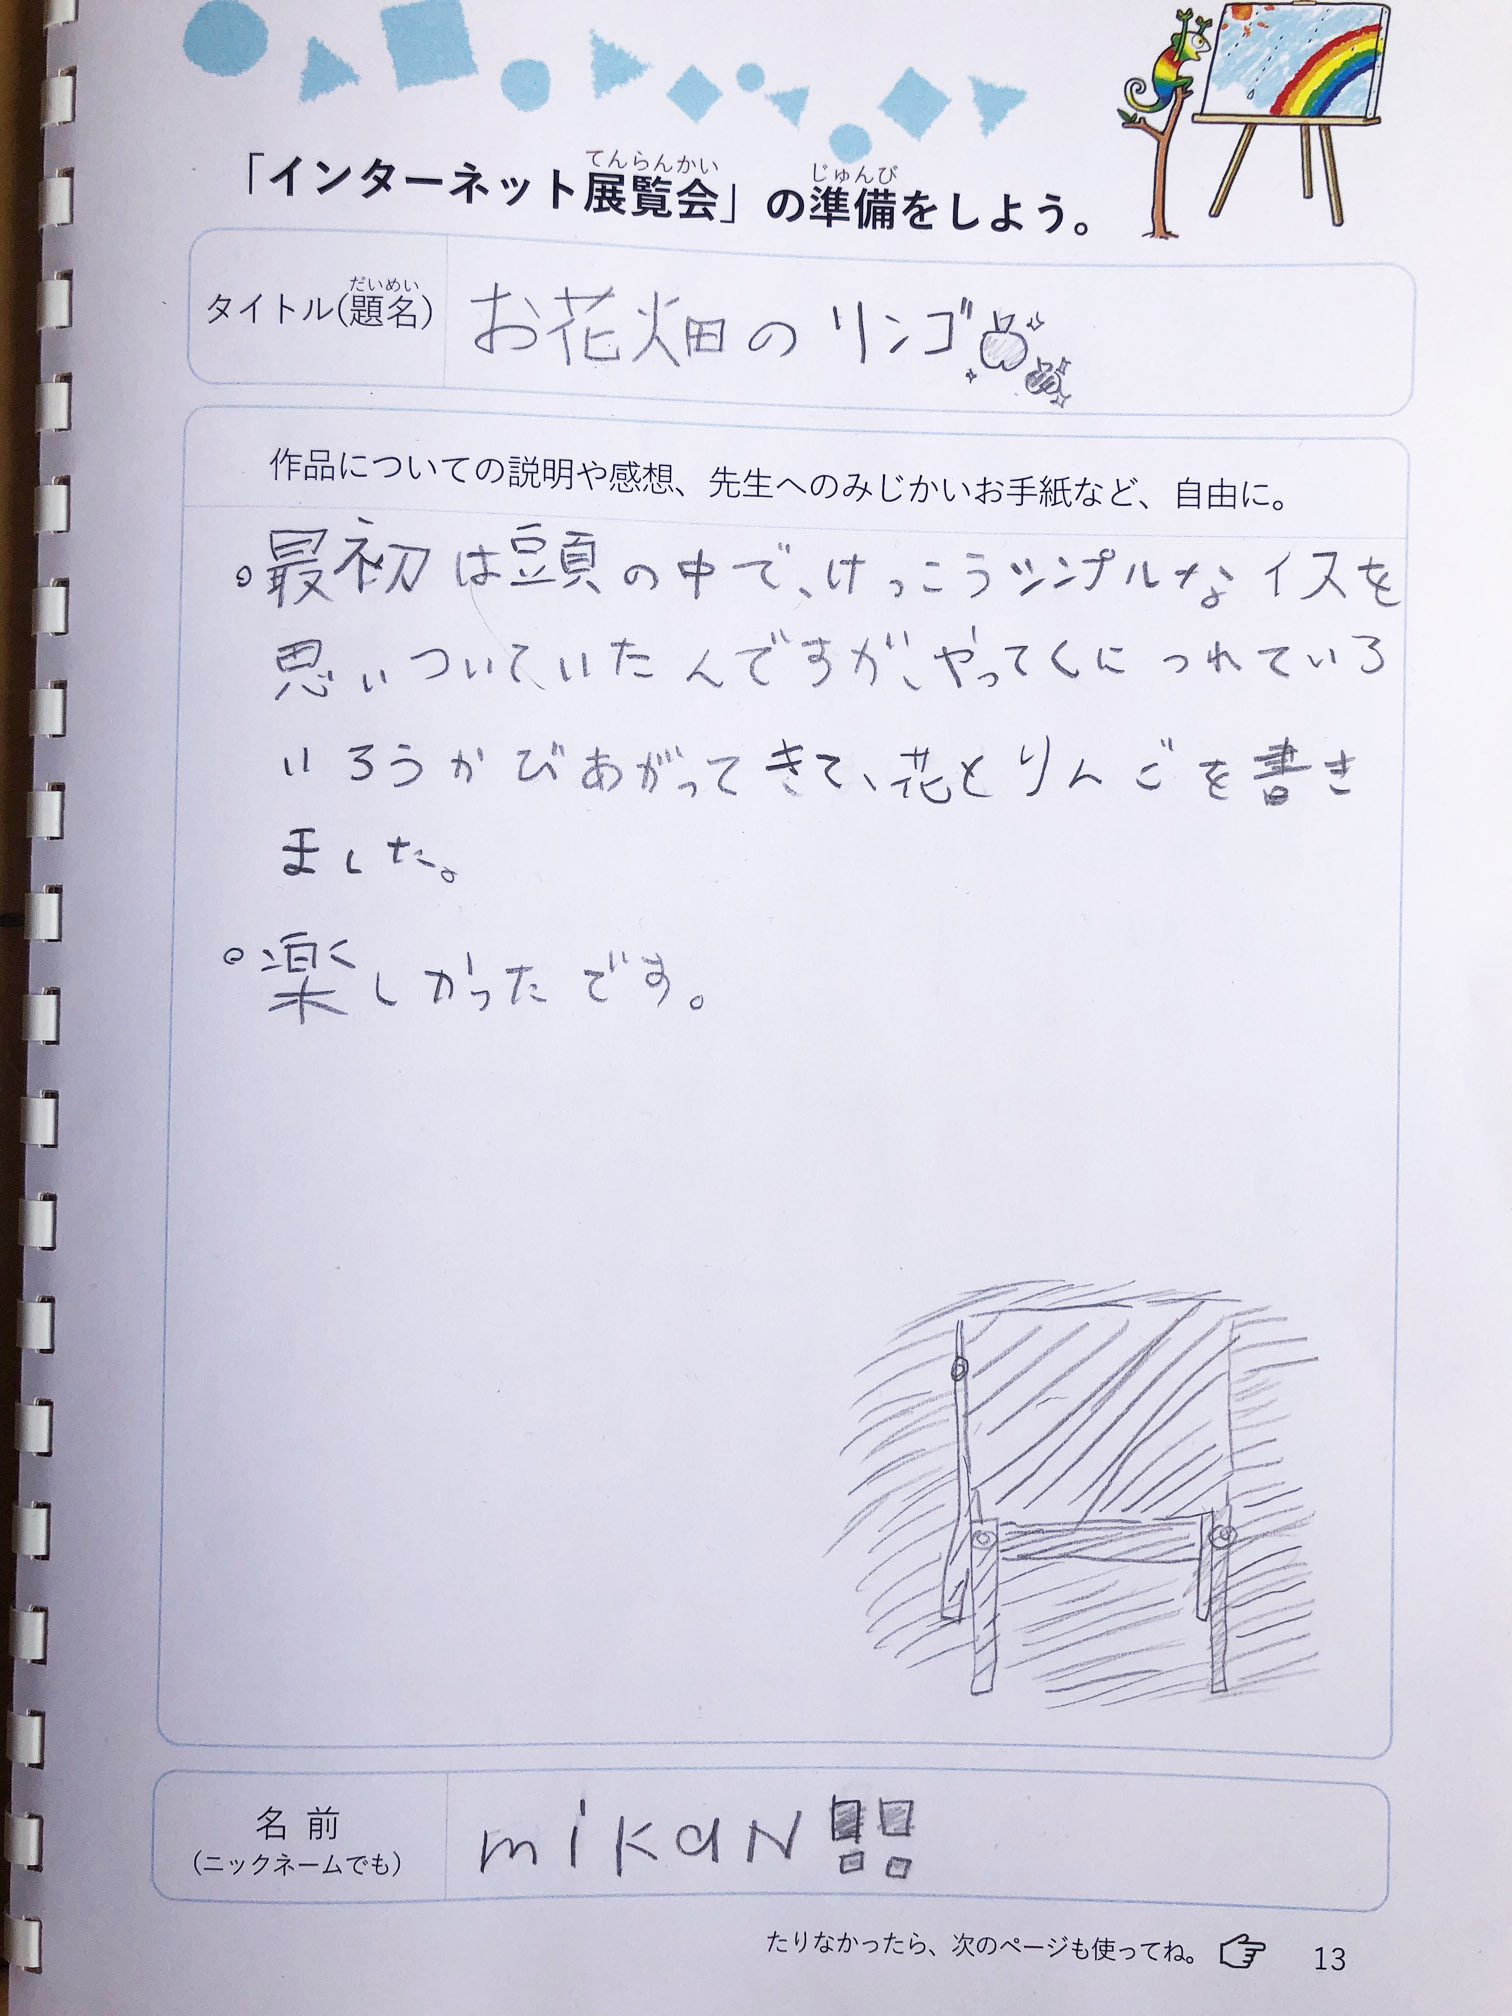 てんらんかい じゅんび
「インターネット展覧会」の準備をしよう。
だいめい
タイトル(題名)
お花畑のリンゴ
作品についての説明や感想、先生へのみじかいお手紙など、自由に。
。最初は頭の中で、けっこうシンプルなイスを
思いついていたんですが、やってくにつれていろ
いろうかびあがってきて、花とりんごを書き
ました。
。楽しかったです。
名前
(ニックネームでも)
mikaN!!
たりなかったら、次のページも使ってね。
13